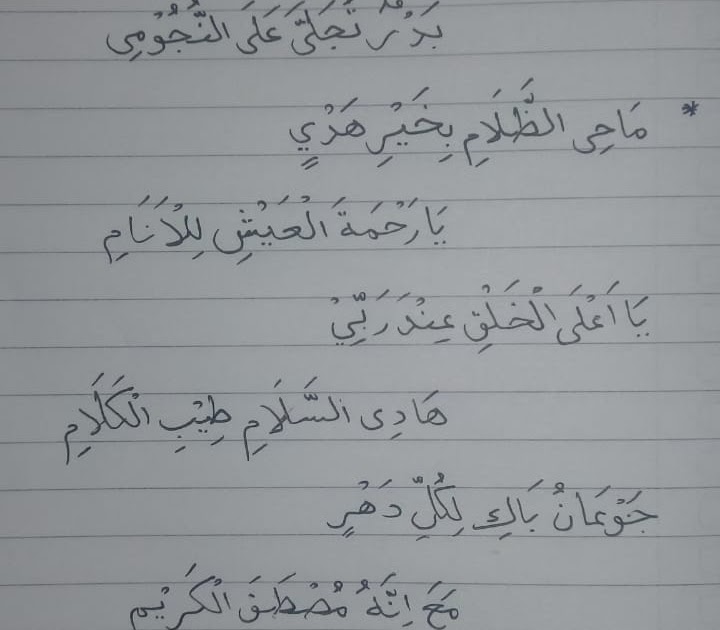 بَدْرٌ تَجَلَّى عَلَى النُّجُوْمِى
* مَاحِى الظَّلَامِ بِخَيْرِ هَدْيٍ
يَارَحْمَةَ الْعَيْشِ لِلْأَنَامِ
يَا اَعْلَى الْخَلْقِ عِنْدَ رَبِّيْ
هَادِى السَّلَامِ طِيْبِ الْكَلَامِ
بَاكِ لِكُلِّ دَهْرٍ
مَعَ اِنَّهُ مُصْطَفَى الْكَرِيْم